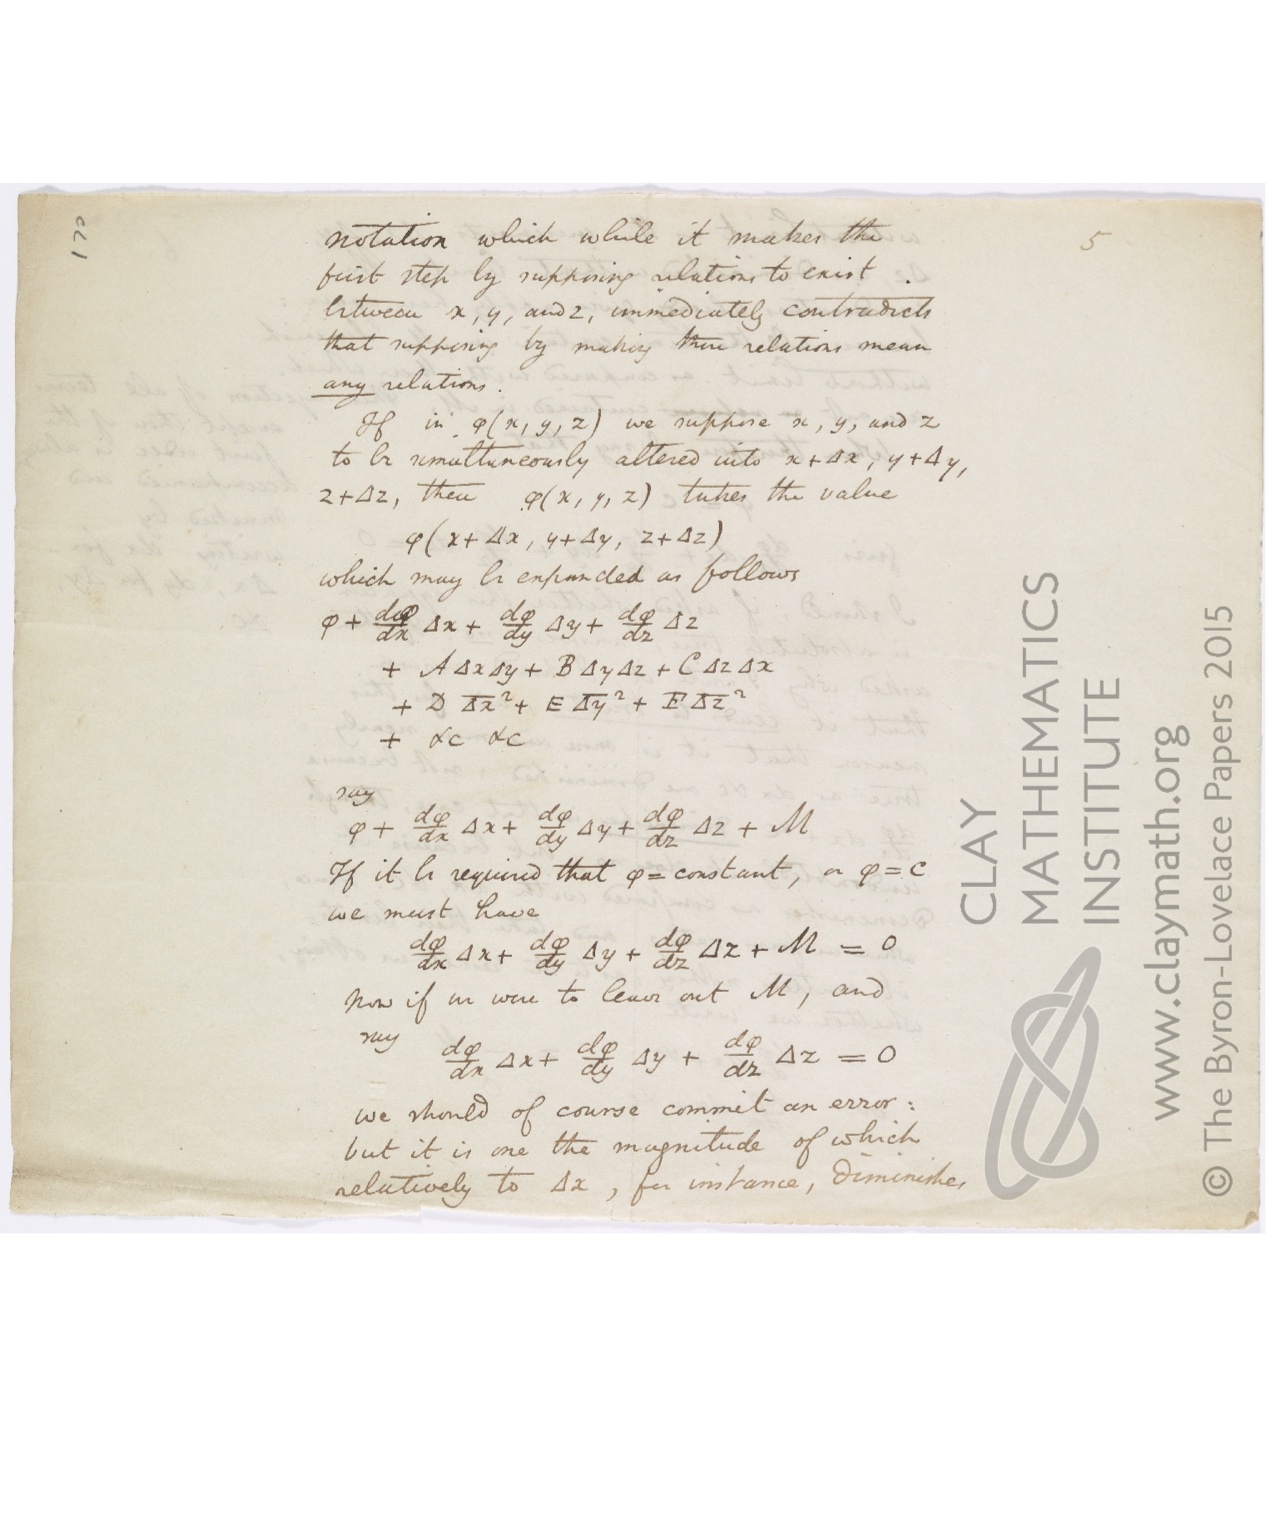 170
5
notation which while it makes the
first step by supposing relations to exist
between x, y, and z, immediately contradicts
that supposing by making these relations mean
any relations.
If in φ(x, y, z) we suppose x, y, and z
to be simultaneously altered into x+Δx, y+Δy,
z+Δz, then φ(x, y, z) takes the value
φ(x+Δx, y+Δy, z+Δz)
which may be expanded as follows
φ + dφ/dx Δx + dφ/dy Δy + dφ/dz Δz
+ A Δx Δy + B Δy Δz + C Δz Δx
+ D Δx² + E Δy² + F Δz²
+ &c &c
say
φ + dφ/dx Δx + dφ/dy Δy + dφ/dz Δz + M
If it be required that φ = constant, or φ = c
we must have
dφ/dx Δx + dφ/dy Δy + dφ/dz Δz + M = 0
Now if we were to leave out M, and
say dφ/dx Δx + dφ/dy Δy + dφ/dz Δz = 0
we should of course commit an error:
but it is one the magnitude of which
relatively to Δx, for instance, diminishes
CLAY
MATHEMATICS
INSTITUTE
www.claymath.org
© The Byron-Lovelace Papers 2015